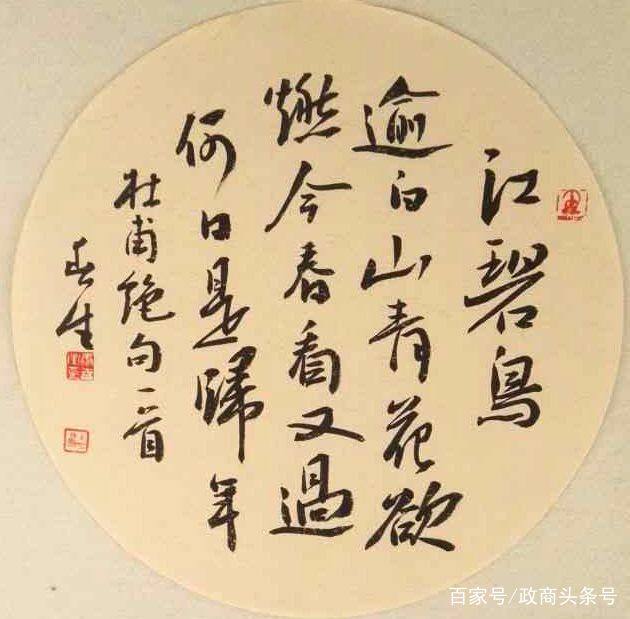 江碧鳥
逾白山青花欲
燃今春看又過
何日是歸年
杜甫絶句一首
生
百家号/政商头条号